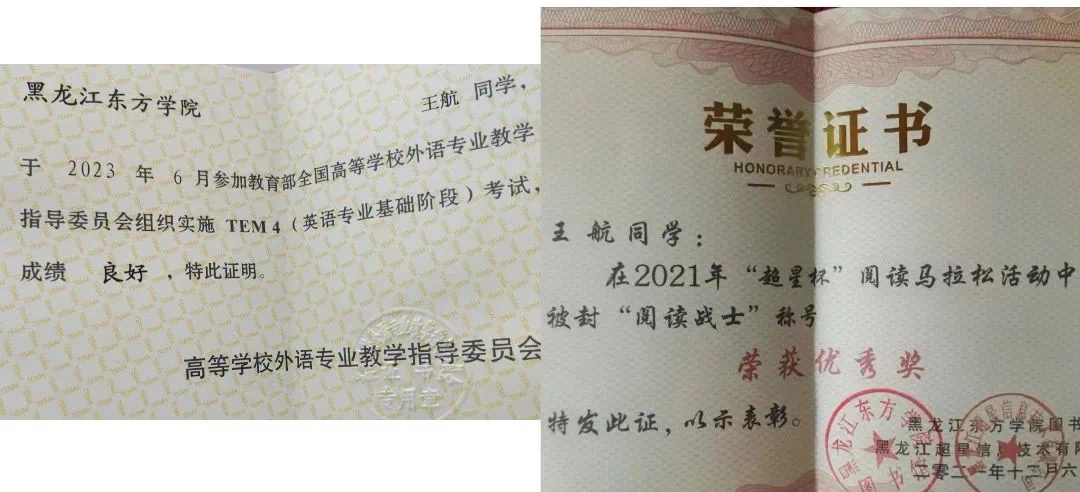 黑龙江东方学院
王航 同学，
于 2023 年 6 月参加教育部全国高等学校外语专业教学
指导委员会组织实施 TEM 4（英语专业基础阶段）考试，
成绩 良好 ，特此证明。
高等学校外语专业教学指导委员会
专用章
荣誉证书
HONORARY CREDENTIAL
王航同学：
在2021年“超星杯”阅读马拉松活动中
被封“阅读战士”称号
荣获优秀奖
特发此证，以示表彰。
黑龙江东方学院图书
黑龙江超星信息技术有限
二零二一年十二月六